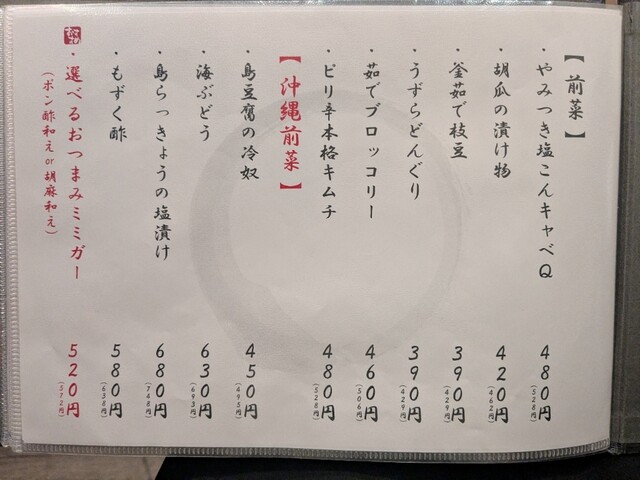 【前菜】
・やみつき塩こんキャベQ 480円 (528円)
・胡瓜の漬け物 420円 (462円)
・釜茹で枝豆 390円 (429円)
・うずらどんぐり 390円 (429円)
・茹でブロッコリー 460円 (506円)
・ピリ辛本格キムチ 480円 (528円)
【沖縄前菜】
・島豆腐の冷奴 450円 (495円)
・海ぶどう 630円 (693円)
・島らっきょうの塩漬け 680円 (748円)
・もずく酢 580円 (638円)
・選べるおつまみミミガー 520円 (572円)
(ポン酢和えor胡麻和え)